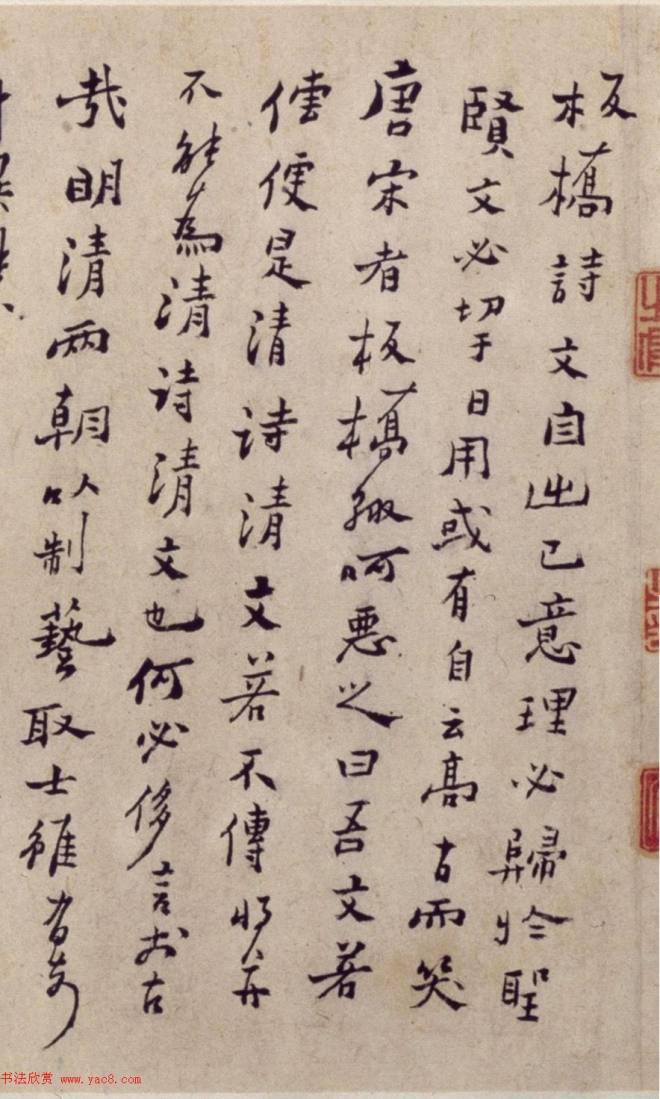 板橋詩文自出己意理必歸於聖
賢文必切于日用或有自云高古而笑
唐宋者板橋輙呵惡之曰吾文若
傳便是清詩清文若不傳將并
不能為清詩清文也何必侈言前古
哉明清兩朝以制藝取士雖有奇
书法欣赏 www.yac8.com